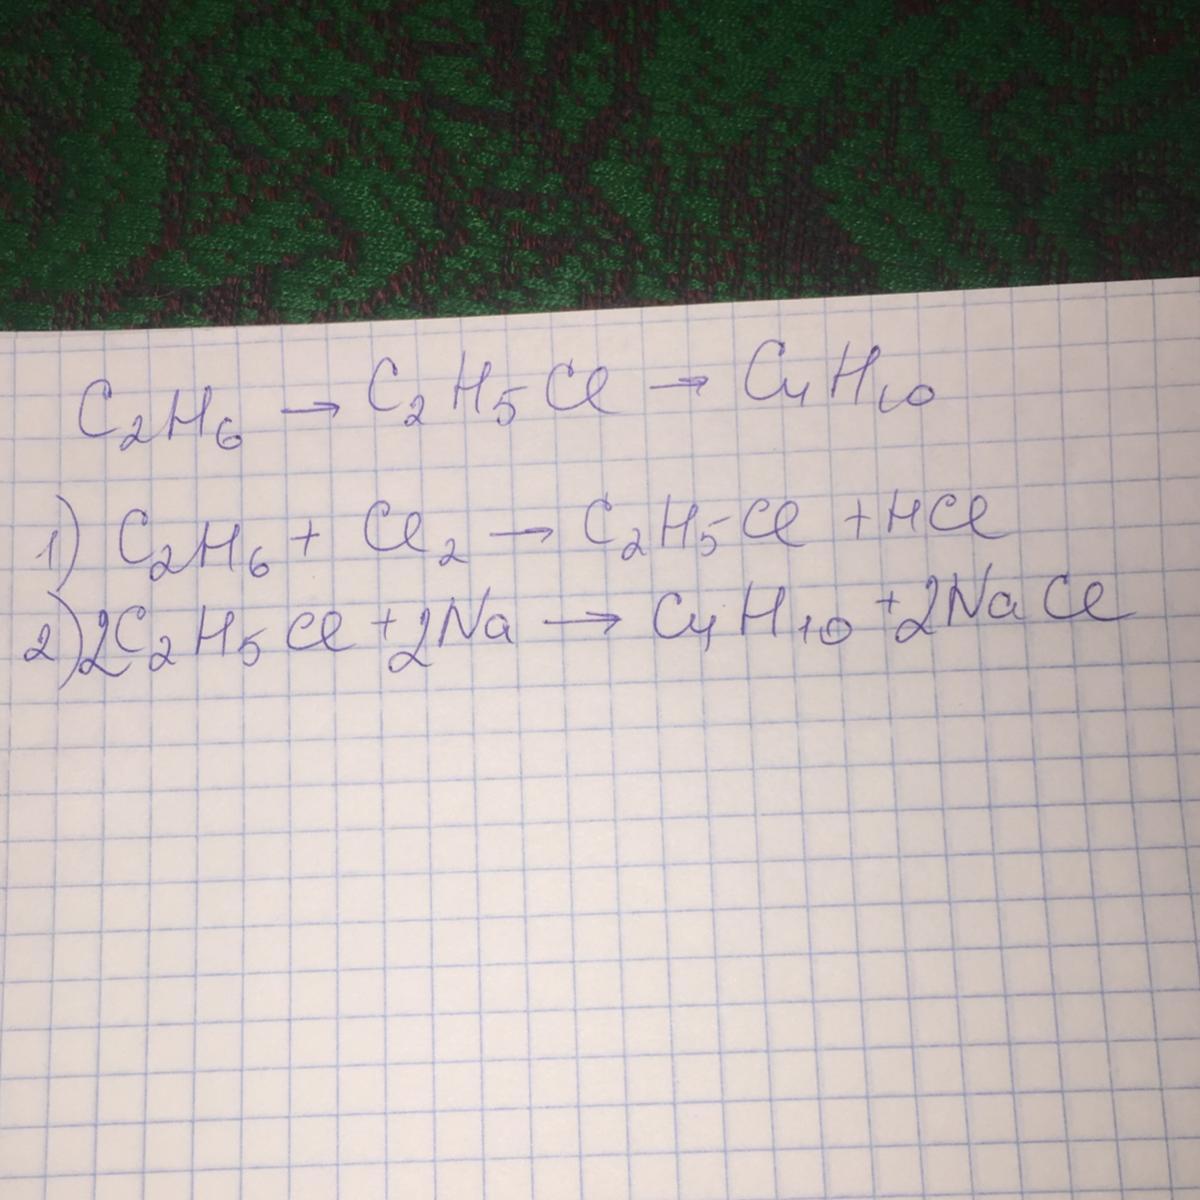 C₂H₆ → C₂H₅Cl → C₄H₁₀
1) C₂H₆ + Cl₂ → C₂H₅Cl + HCl
2) 2C₂H₅Cl + 2Na → C₄H₁₀ + 2NaCl